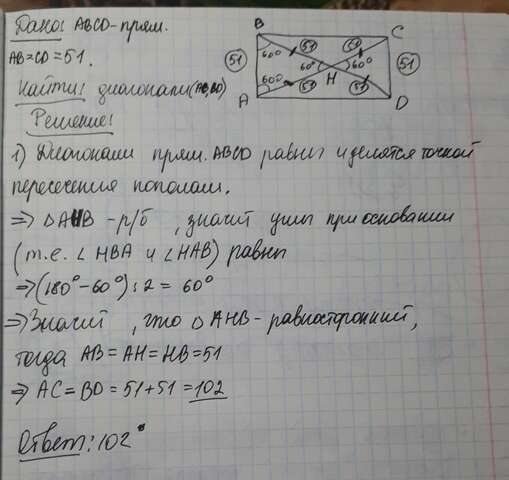 Дано: ABCD-прям.
AB=CD=51.
Найти: диагонали(AC,BD)
Решение:
B
C
51
51
51
51
60°
60°
60°
60°
H
51
51
A
D
1) Диагонали прям. ABCD равны и делятся точкой
пересечения пополам.
⇒ △AHB - р/б , значит углы при основании
(т.е. ∠HBA и ∠HAB) равны
⇒(180°-60°):2 = 60°
⇒Значит , что △AHB - равносторонний,
тогда AB=AH=HB=51
⇒ AC=BD=51+51=102
Ответ: 102